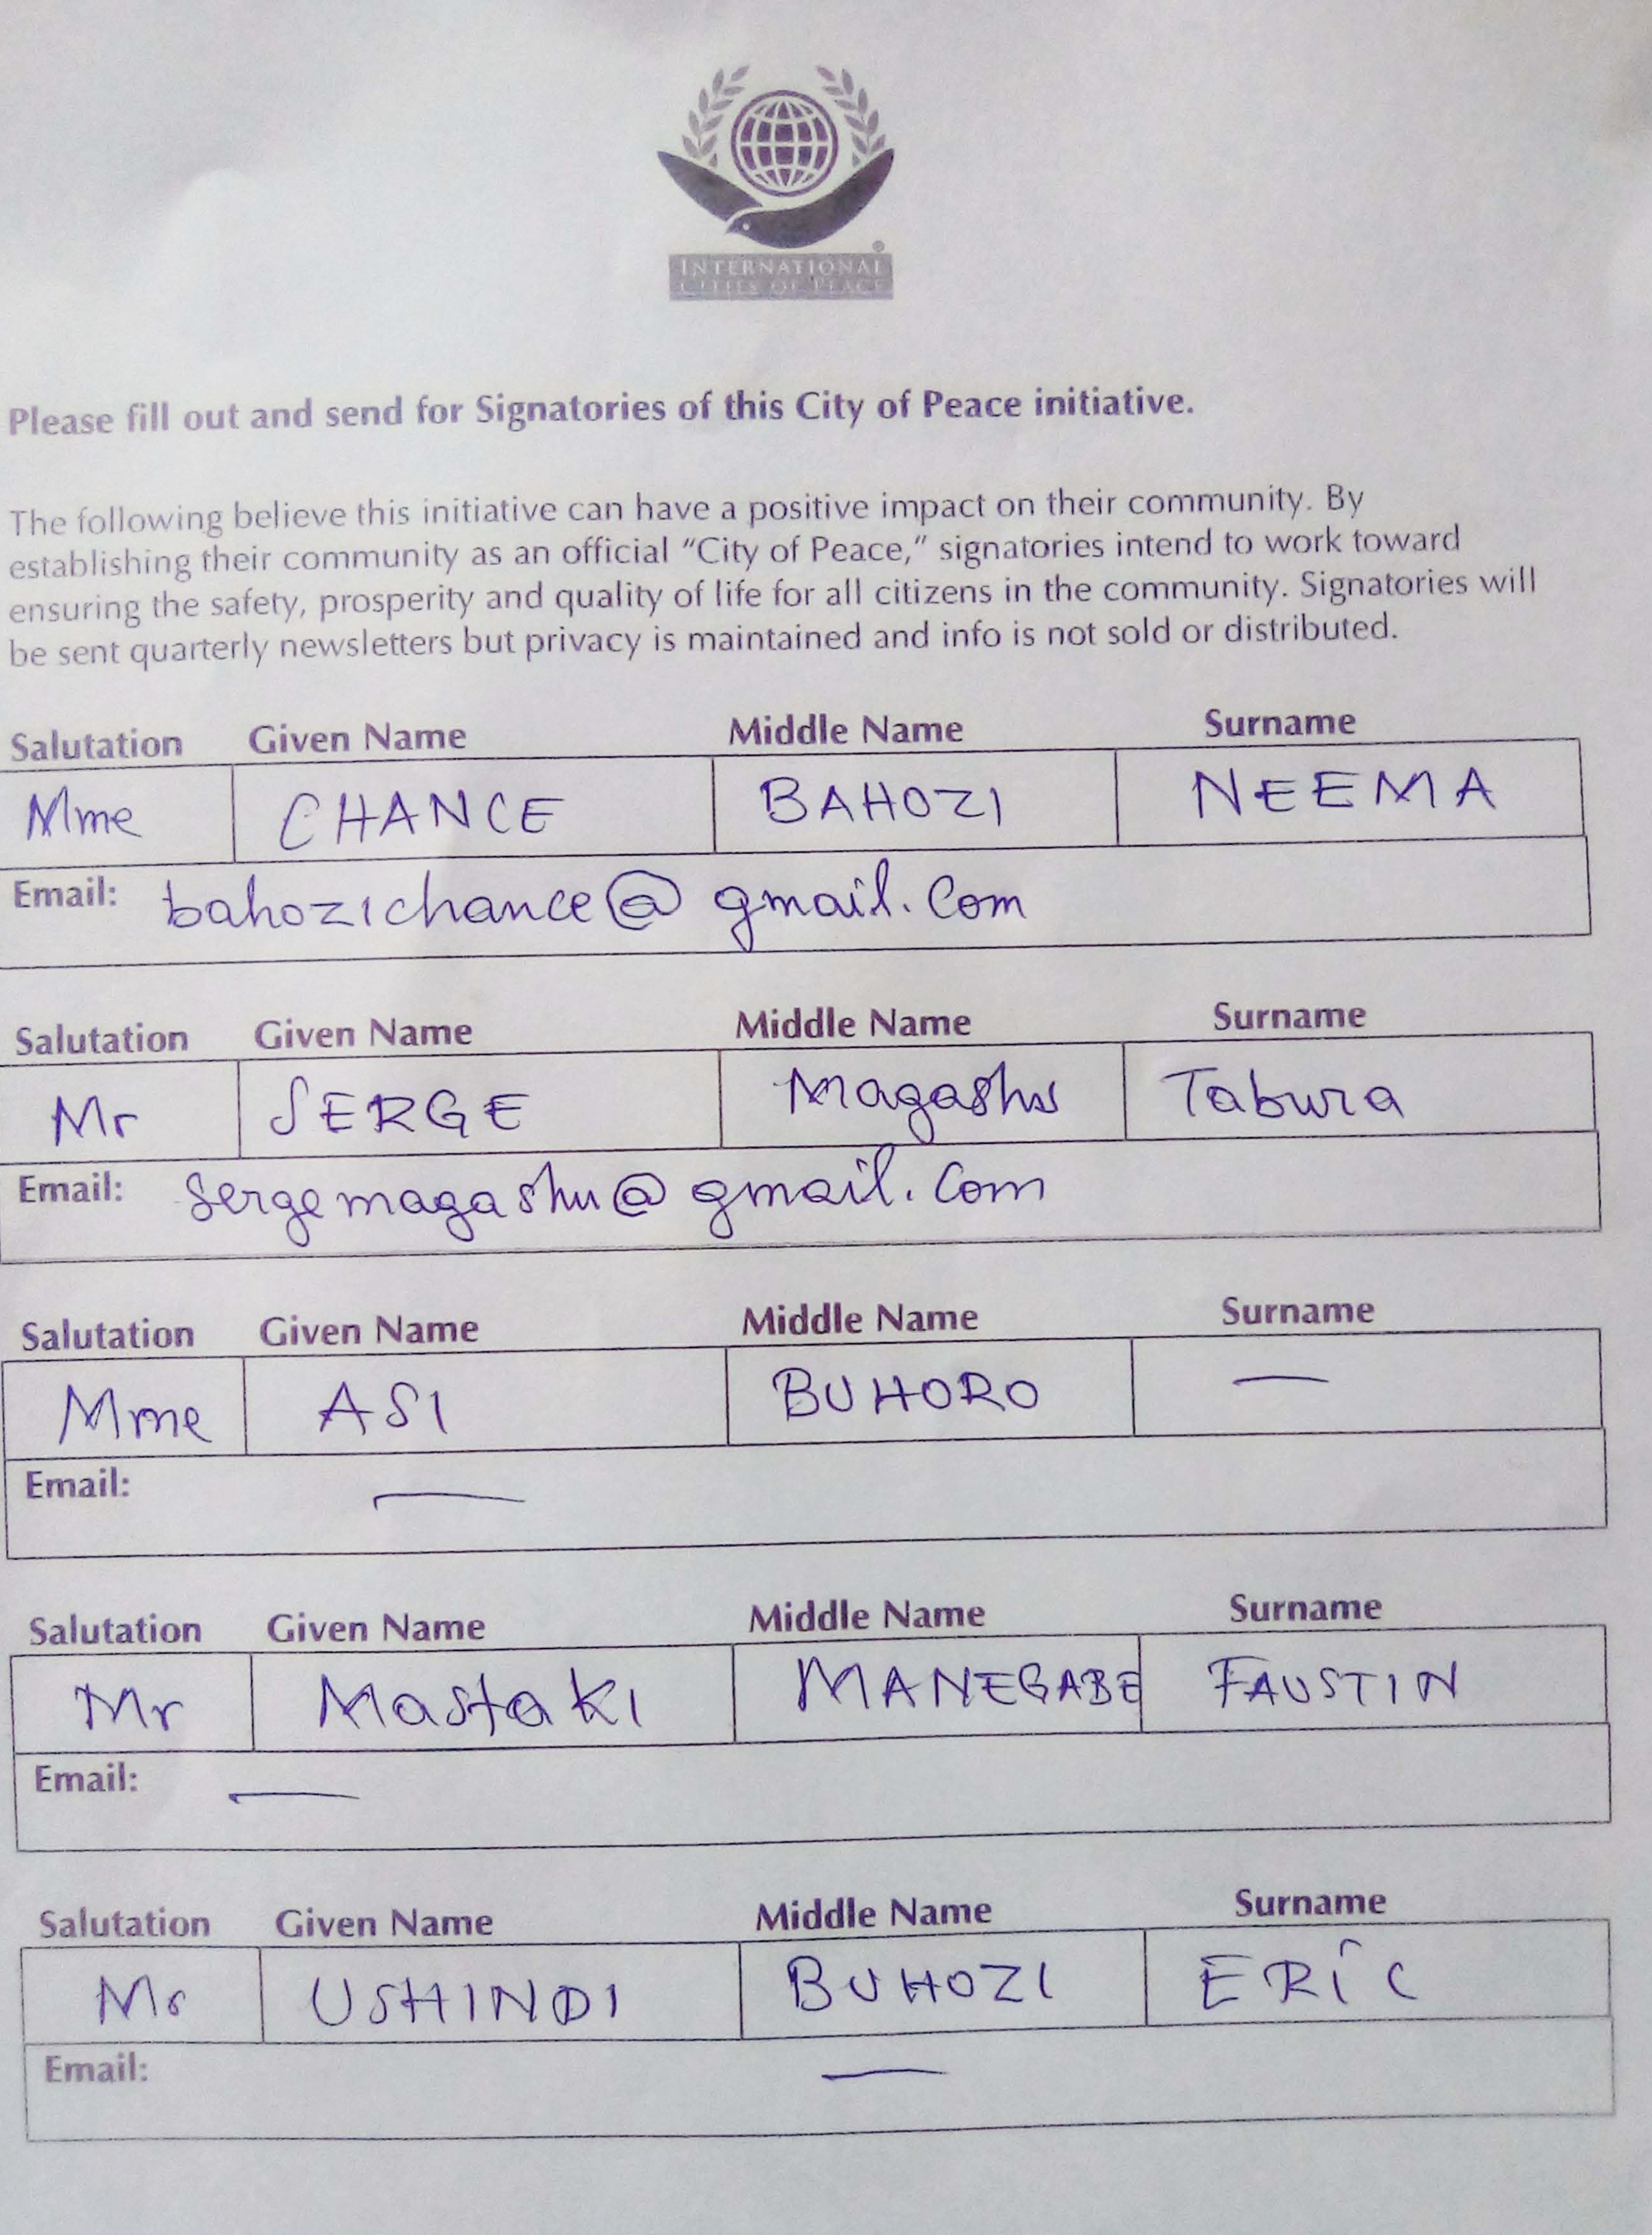 INTERNATIONAL
CITIES OF PEACE
Please fill out and send for Signatories of this City of Peace initiative.
The following believe this initiative can have a positive impact on their community. By
establishing their community as an official “City of Peace,” signatories intend to work toward
ensuring the safety, prosperity and quality of life for all citizens in the community. Signatories will
be sent quarterly newsletters but privacy is maintained and info is not sold or distributed.
Salutation Given Name Middle Name Surname
Mme CHANCE BAHOZI NEEMA
Email: bahozichance@gmail.com
Salutation Given Name Middle Name Surname
Mr SERGE Magashu Tabura
Email: sergemagashu@gmail.com
Salutation Given Name Middle Name Surname
Mme ASI BUHORO —
Email: —
Salutation Given Name Middle Name Surname
Mr Mastaki MANEGABE FAUSTIN
Email: —
Salutation Given Name Middle Name Surname
Mr USHINDI BUHOZI ERIC
Email: —